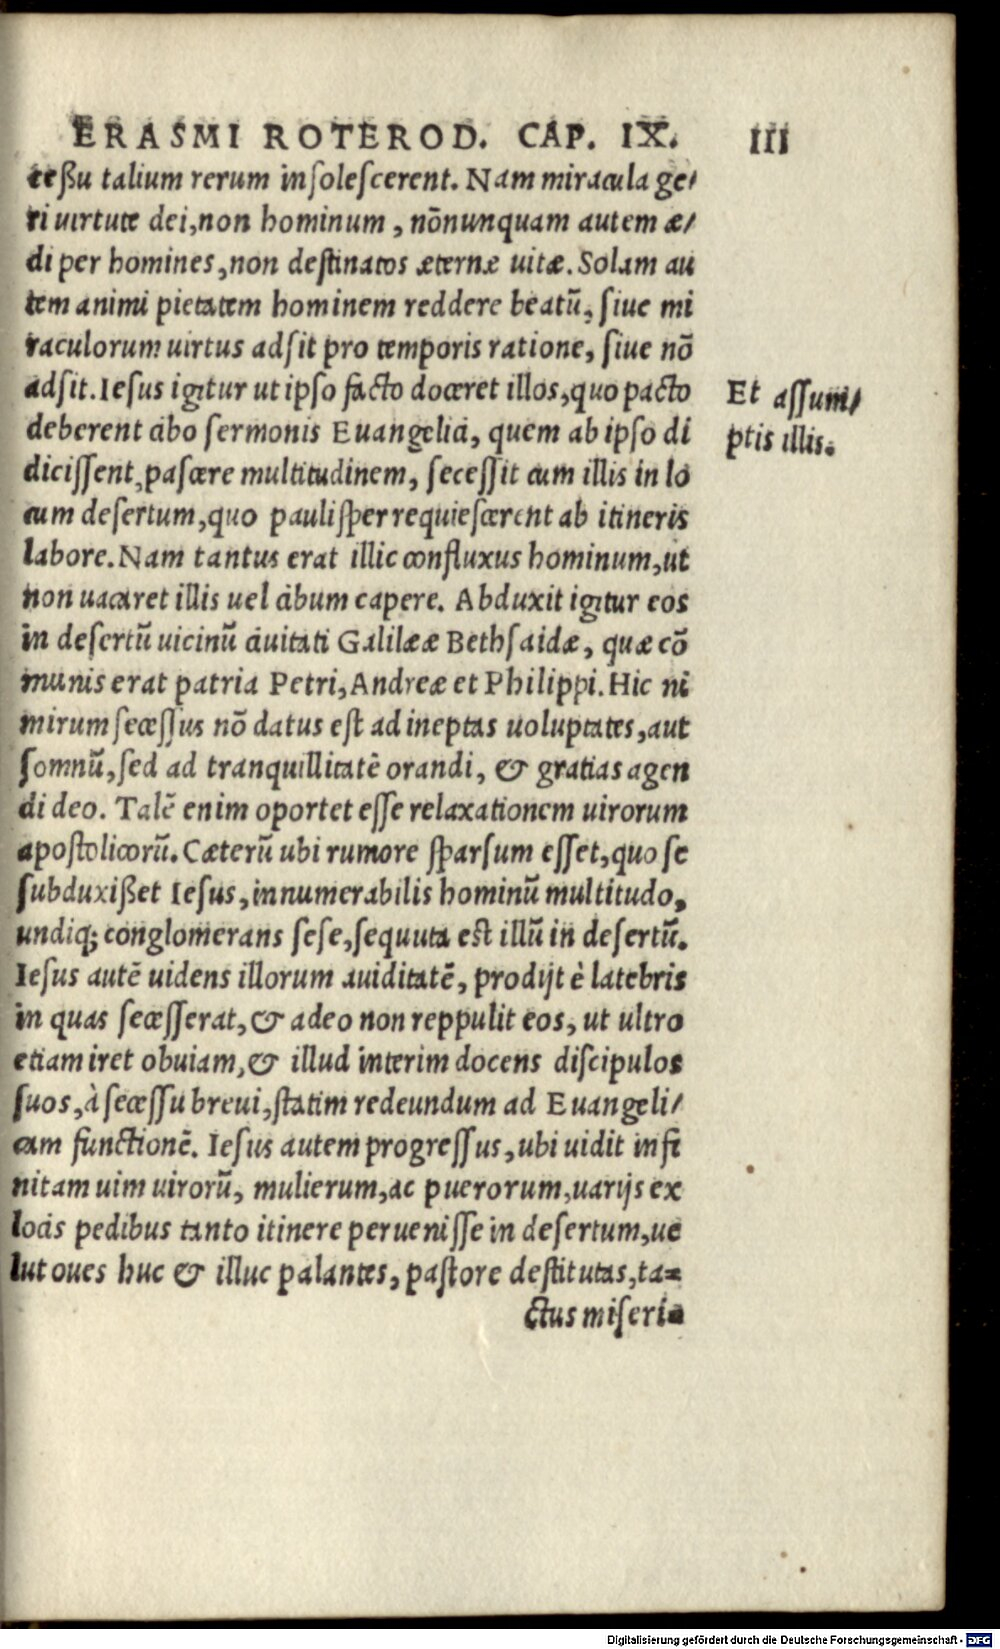 ERASMI ROTEROD. CAP. IX. III
ceßu talium rerum insolescerent. Nam miracula ge/
ri uirtute dei, non hominum, nōnunquam autem æ/
di per homines, non destinatos æternæ uitæ. Solam au
tem animi pietatem hominem reddere beatū, siue mi
raculorum uirtus adsit pro temporis ratione, siue nō
adsit. Iesus igitur ut ipso facto doceret illos, quo pacto
Et assum/
deberent cibo sermonis Euangelici, quem ab ipso di
ptis illis.
dicissent, pascere multitudinem, secessit cum illis in lo
cum desertum, quo paulisper requiescerent ab itineris
labore. Nam tantus erat illic confluxus hominum, ut
non uacaret illis uel cibum capere. Abduxit igitur eos
in desertū uicinū ciuitati Galilææ Bethsaidæ, quæ cō
munis erat patria Petri, Andreæ et Philippi. Hic ni
mirum secessus nō datus est ad ineptas uoluptates, aut
somnū, sed ad tranquillitatē orandi, & gratias agen
di deo. Talē enim oportet esse relaxationem uirorum
apostolicorū. Cæterū ubi rumore sparsum esset, quo se
subduxißet Iesus, innumerabilis hominū multitudo,
undiq; conglomerans sese, sequuta est illū in desertū.
Iesus autē uidens illorum auiditatē, prodijt è latebris
in quas secesserat, & adeo non reppulit eos, ut ultro
etiam iret obuiam, & illud interim docens discipulos
suos, à secessu breui, statim redeundum ad Euangeli/
cam functionē. Iesus autem progressus, ubi uidit infi
nitam uim uirorū, mulierum, ac puerorum, uarijs ex
locis pedibus tanto itinere peruenisse in desertum, ue
lut oues huc & illuc palantes, pastore destitutas, ta=
ctus miseri=
Digitalisierung gefördert durch die Deutsche Forschungsgemeinschaft - DFG